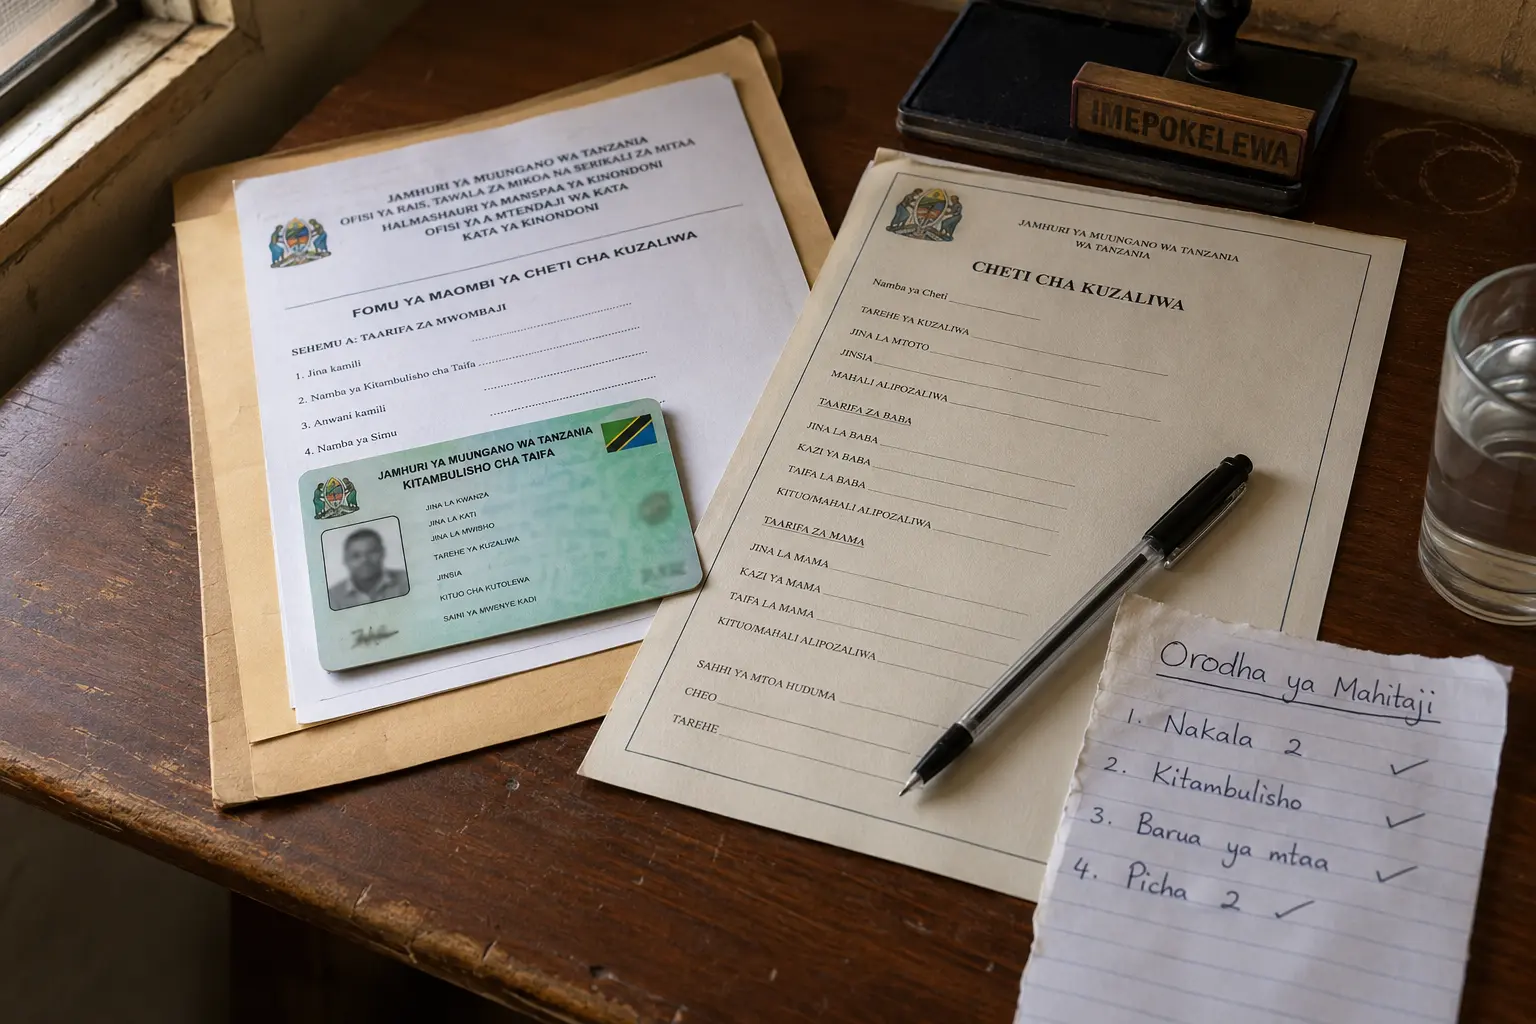 JAMHURI YA MUUNGANO WA TANZANIA
OFISI YA RAIS, TAWALA ZA MIKOA NA SERIKALI ZA MITAA
HALMASHAURI YA MANISPAA YA KINONDONI
OFISI YA A MTENDAJI WA KATA
KATA YA KINONDONI
FOMU YA MAOMBI YA CHETI CHA KUZALIWA
SEHEMU A: TAARIFA ZA MWOMBAJI
1. Jina kamili
2. Namba ya Kitambulisho cha Taifa
3. Anwani kamili
4. Namba ya Simu
JAMHURI YA MUUNGANO WA TANZANIA
KITAMBULISHO CHA TAIFA
JINA LA KWANZA
JINA LA KATI
JINA LA MWISHO
TAREHE YA KUZALIWA
JINSIA
KITUO CHA KUTOLEWA
SAINI YA MWENYE KADI
IMEPOKELEWA
JAMHURI YA MUUNGANO WA TANZANIA
WA TANZANIA
CHETI CHA KUZALIWA
Namba ya Cheti
TAREHE YA KUZALIWA
JINA LA MTOTO
JINSIA
MAHALI ALIPOZALIWA
TAARIFA ZA BABA
JINA LA BABA
KAZI YA BABA
TAIFA LA BABA
KITUO/MAHALI ALIPOZALIWA
TAARIFA ZA MAMA
JINA LA MAMA
KAZI YA MAMA
TAIFA LA MAMA
KITUO/MAHALI ALIPOZALIWA
SAHHI YA MTOA HUDUMA
CHEO
TAREHE
Orodha ya Mahitaji
1. Nakala 2 ✓
2. Kitambulisho ✓
3. Barua ya mtaa ✓
4. Picha 2 ✓